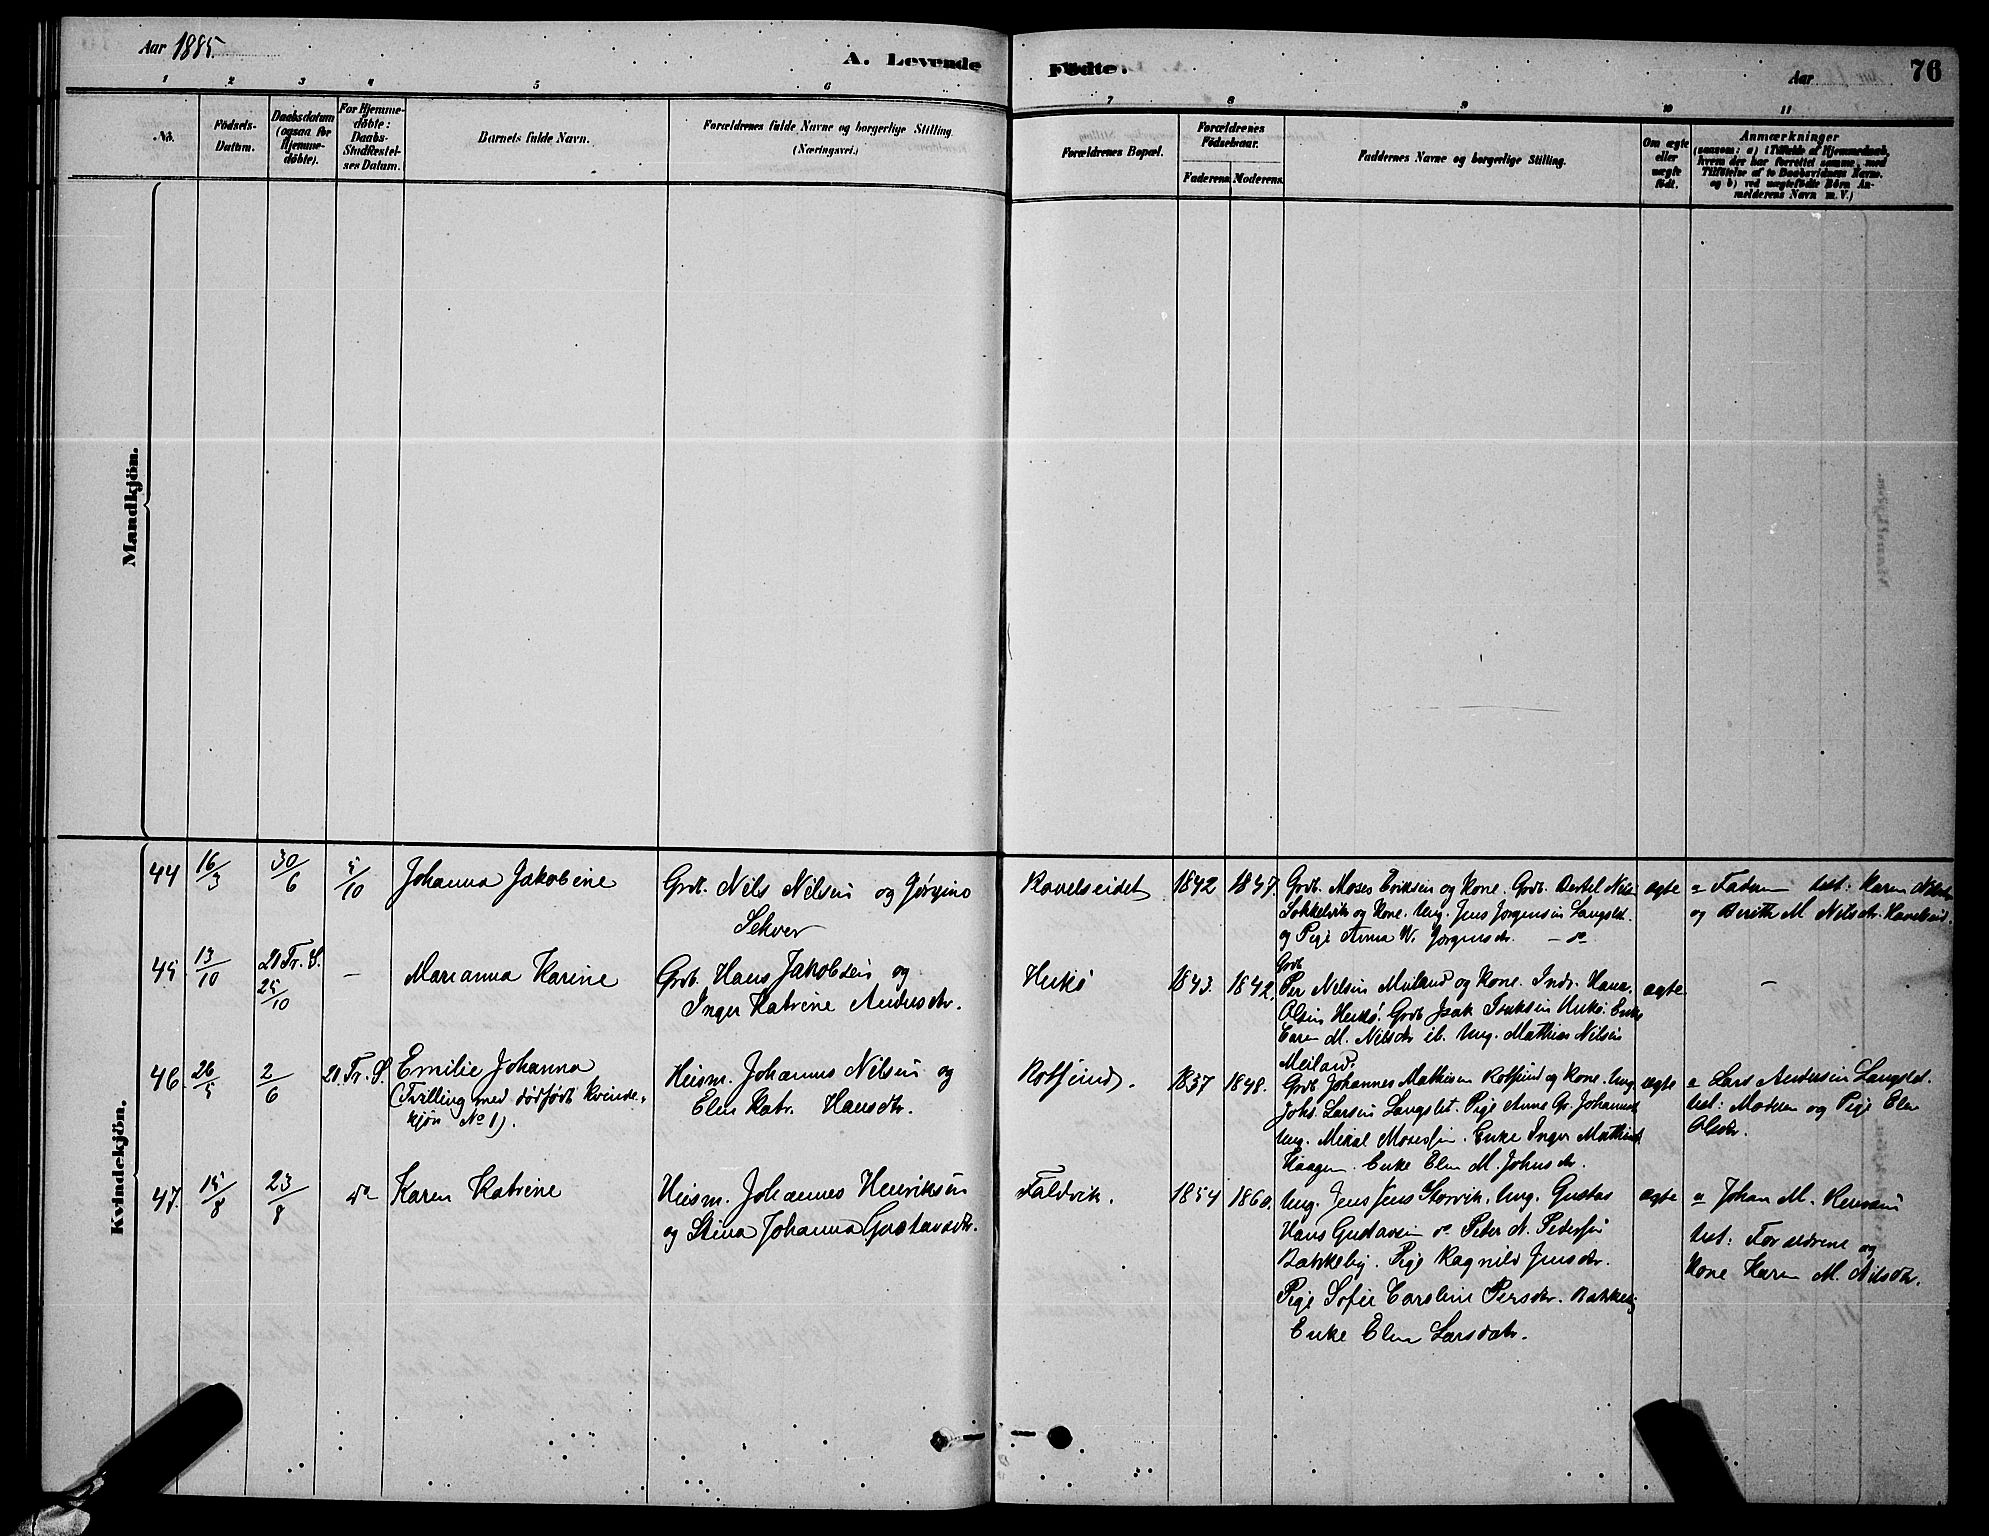 Aar 1885.
A. Levende Födte.
Aar
76
1 2 3 4 5 6 7 8 9 10 11
No.
Födsels-
Datum.
Daabsdatum
(ogsaa for
Hjemme-
döbte).
For Hjemme-
döbte:
Daabs-
Stadfæstel-
ses Datum.
Barnets fulde Navn.
Forældrenes fulde Navne og borgerlige Stilling
(Næringsvei.)
Forældrenes Bopæl.
Forældrenes
Födselsaar.
Faderens Moderens
Faddernes Navne og borgerlige Stilling.
Om ægte
eller
uægte
födt.
Anmærkninger
(saasom: a) i Tilfælde af Hjemmedaab,
hvem der har forrettet samme, med
Tilföielse af to Daabsvidners Navne.
og b) ved uægtefödte Börn An-
melderens Navn m. V.)
Mandkjön.
Kvindekjön.
44 16/3 30/6 5/10 Johanna Jakobine
Grdb. Nils Nilsen og Jörgine
Sekver
Ravelseidet 1842 1847.
Grdb. Moses Eriksen og Kone. Grdb. Bertel Nils
Sokkelvik og Kone. Ung. Jens Jörgensen Langslet.
og Pige Anna W. Jörgensdr. — do
ægte
a Faderen test: Karen Nilsdr
og Berith M. Nilsdr.
45 13/10 21 Tr. S. 25/10 — Marianna Karine
Grdb. Hans Jakobsen og
Inger Katrine Andersdr.
Hukö 1843. 1842.
Grdb
Per Nilsen Meiland og Kone. Indr. Hans
Olsen Hukö. Grdb Isak Isaksen Hukö. Enke
Caren M. Nilsdr ib. Ung. Mathias Nilsen
Meiland.
ægte. —
46 26/5 2/6 21. Tr. S. Emilie Johanna
(Tvilling med dödfödt Kvinde-
kjön No 1).
Husm. Johannes Nilsen og
Elen Katr. Hansdr.
Rotsund. 1837 1848.
Grdb Johannes Mathisen Rotsund og Kone. Ung.
Johs. Larsen Langslet. Pige Anne Gr. Johannesd
Ung. Mikal Mosessen. Enke Inger Mathisd
Haagen. Enke Elen M. Johnsdr.
ægte
a Lars Andersen Langslet.
test: Moderen og Pige Elen
Olsdr.
47. 15/8 23/8 do Karen Katrine
Husm. Johannes Henriksen
og Stina Johanna Gustavsdr.
Faldvik. 1854 1860.
Ung. Jens Jens Storvik. Ung. Gustav
Hans Gustavsen do Peder N. Pedersen
Bakkeby. Pige Ragnild Jensdr.
Pige Sofie Caroline Persdr. Bakkeby
Enke Elen Larsdatr.
ægte
a Johan M. Hansen
test: Forældrene og
Kone Karen M. Nilsdr.